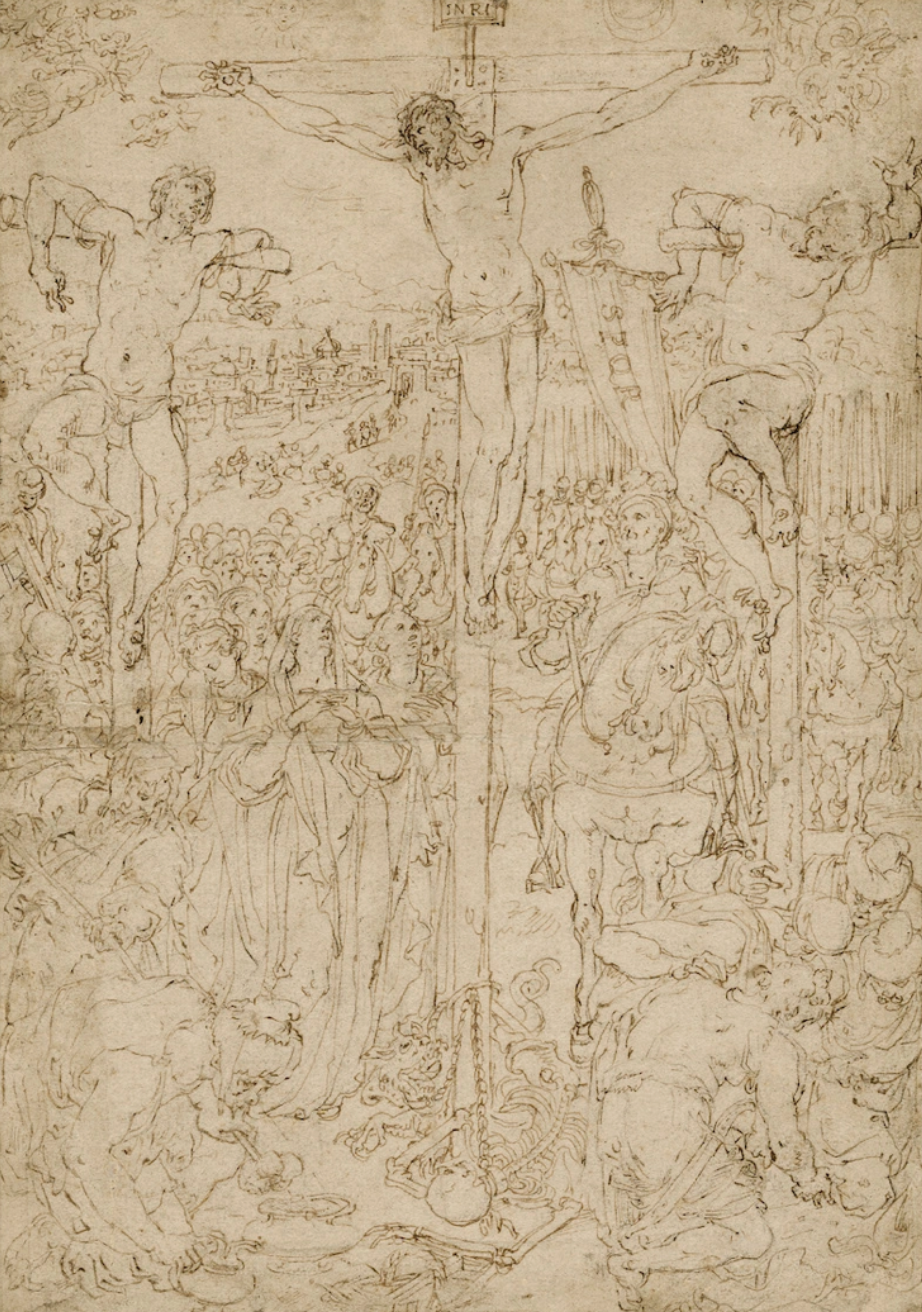 INRI
SPQR